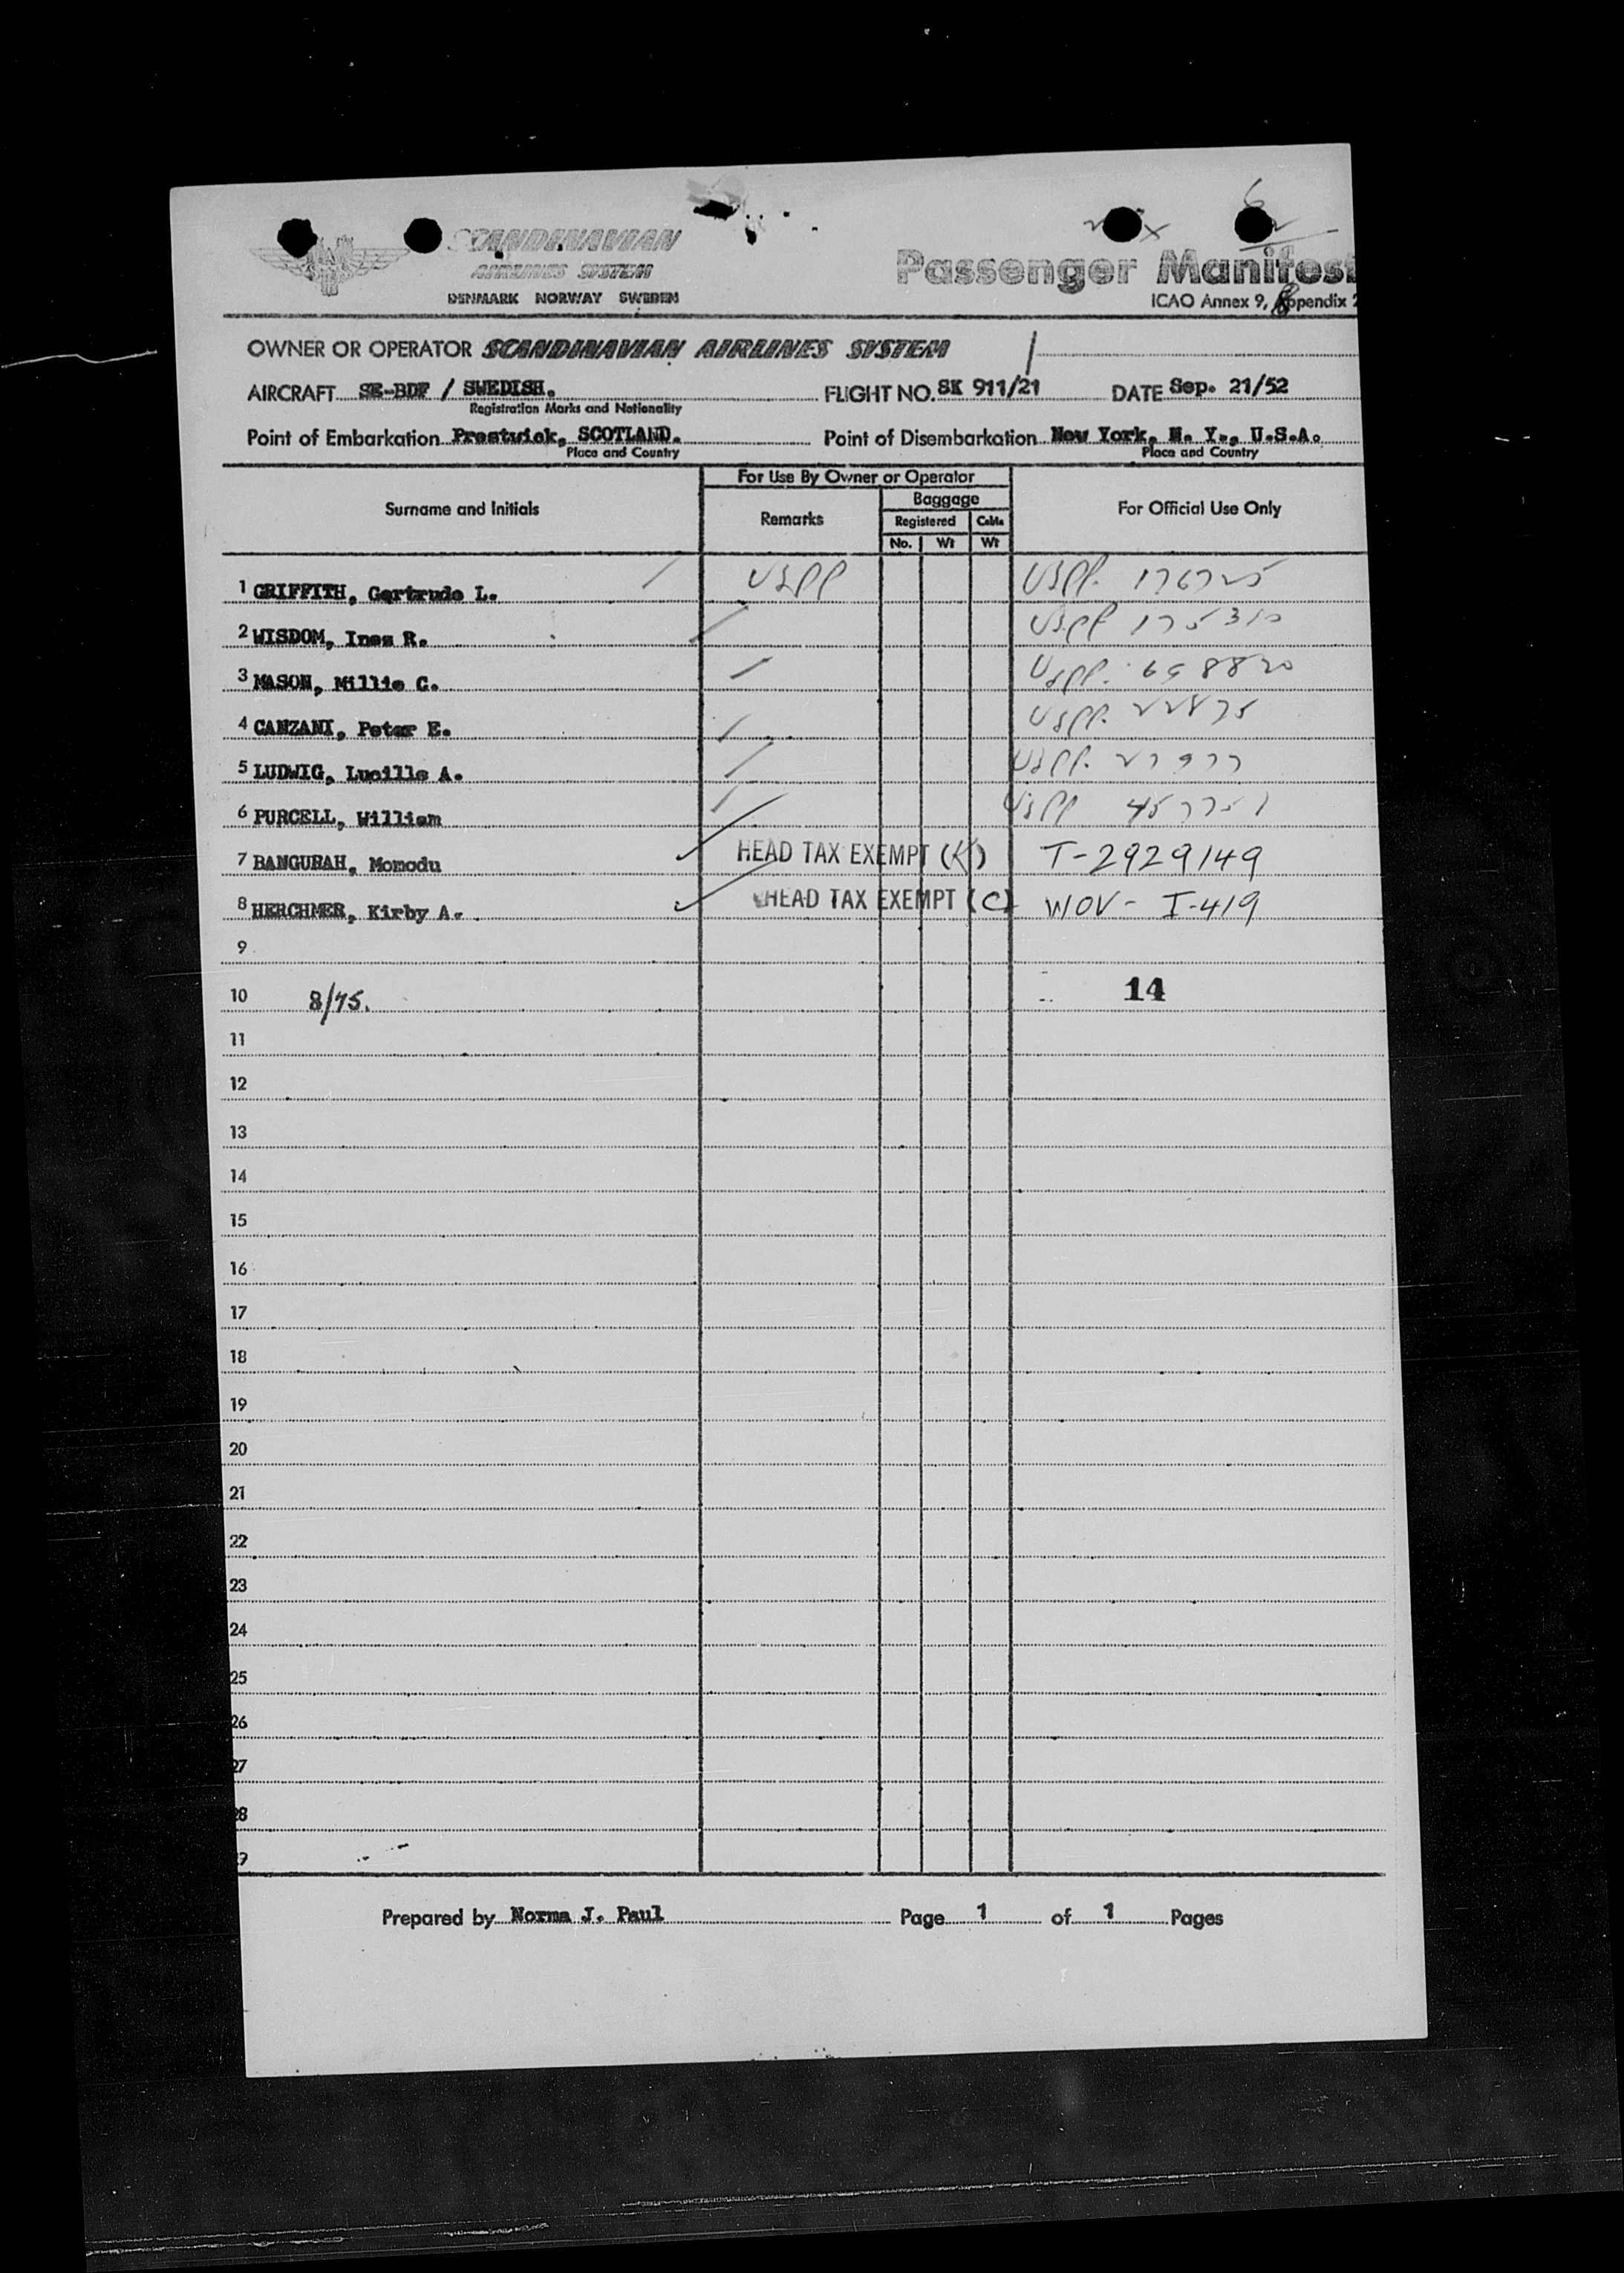 SCANDINAVIAN
AIRLINES SYSTEM
DENMARK NORWAY SWEDEN
Passenger Manifest
ICAO Annex 9, Appendix 2
OWNER OR OPERATOR SCANDINAVIAN AIRLINES SYSTEM
AIRCRAFT SE-BDF / SWEDISH. FLIGHT NO. SK 911/21 DATE Sep. 21/52
Registration Marks and Nationality
Point of Embarkation Prestwick, SCOTLAND. Point of Disembarkation New York, N. Y., U.S.A.
Place and Country Place and Country
For Use By Owner or Operator
Surname and Initials Remarks Baggage For Official Use Only
Registered Cabin
No. Wt Wt
1 GRIFFITH, Gertrude L. USPP USPP. 176725
2 WISDOM, Ines R. USPP 175310
3 MASON, Millie C. USPP. 698820
4 CANZANI, Peter E. USPP. 22875
5 LUDWIG, Lucille A. USPP. 27977
6 PURCELL, William USPP 457751
7 BANGURAH, Momodu HEAD TAX EXEMPT (K) T-2929149
8 HERCHMER, Kirby A. HEAD TAX EXEMPT (C) WOV- I-419
9
10 8/75. 14
11
12
13
14
15
16
17
18
19
20
21
22
23
24
25
26
27
28
29
Prepared by Norma J. Paul Page 1 of 1 Pages